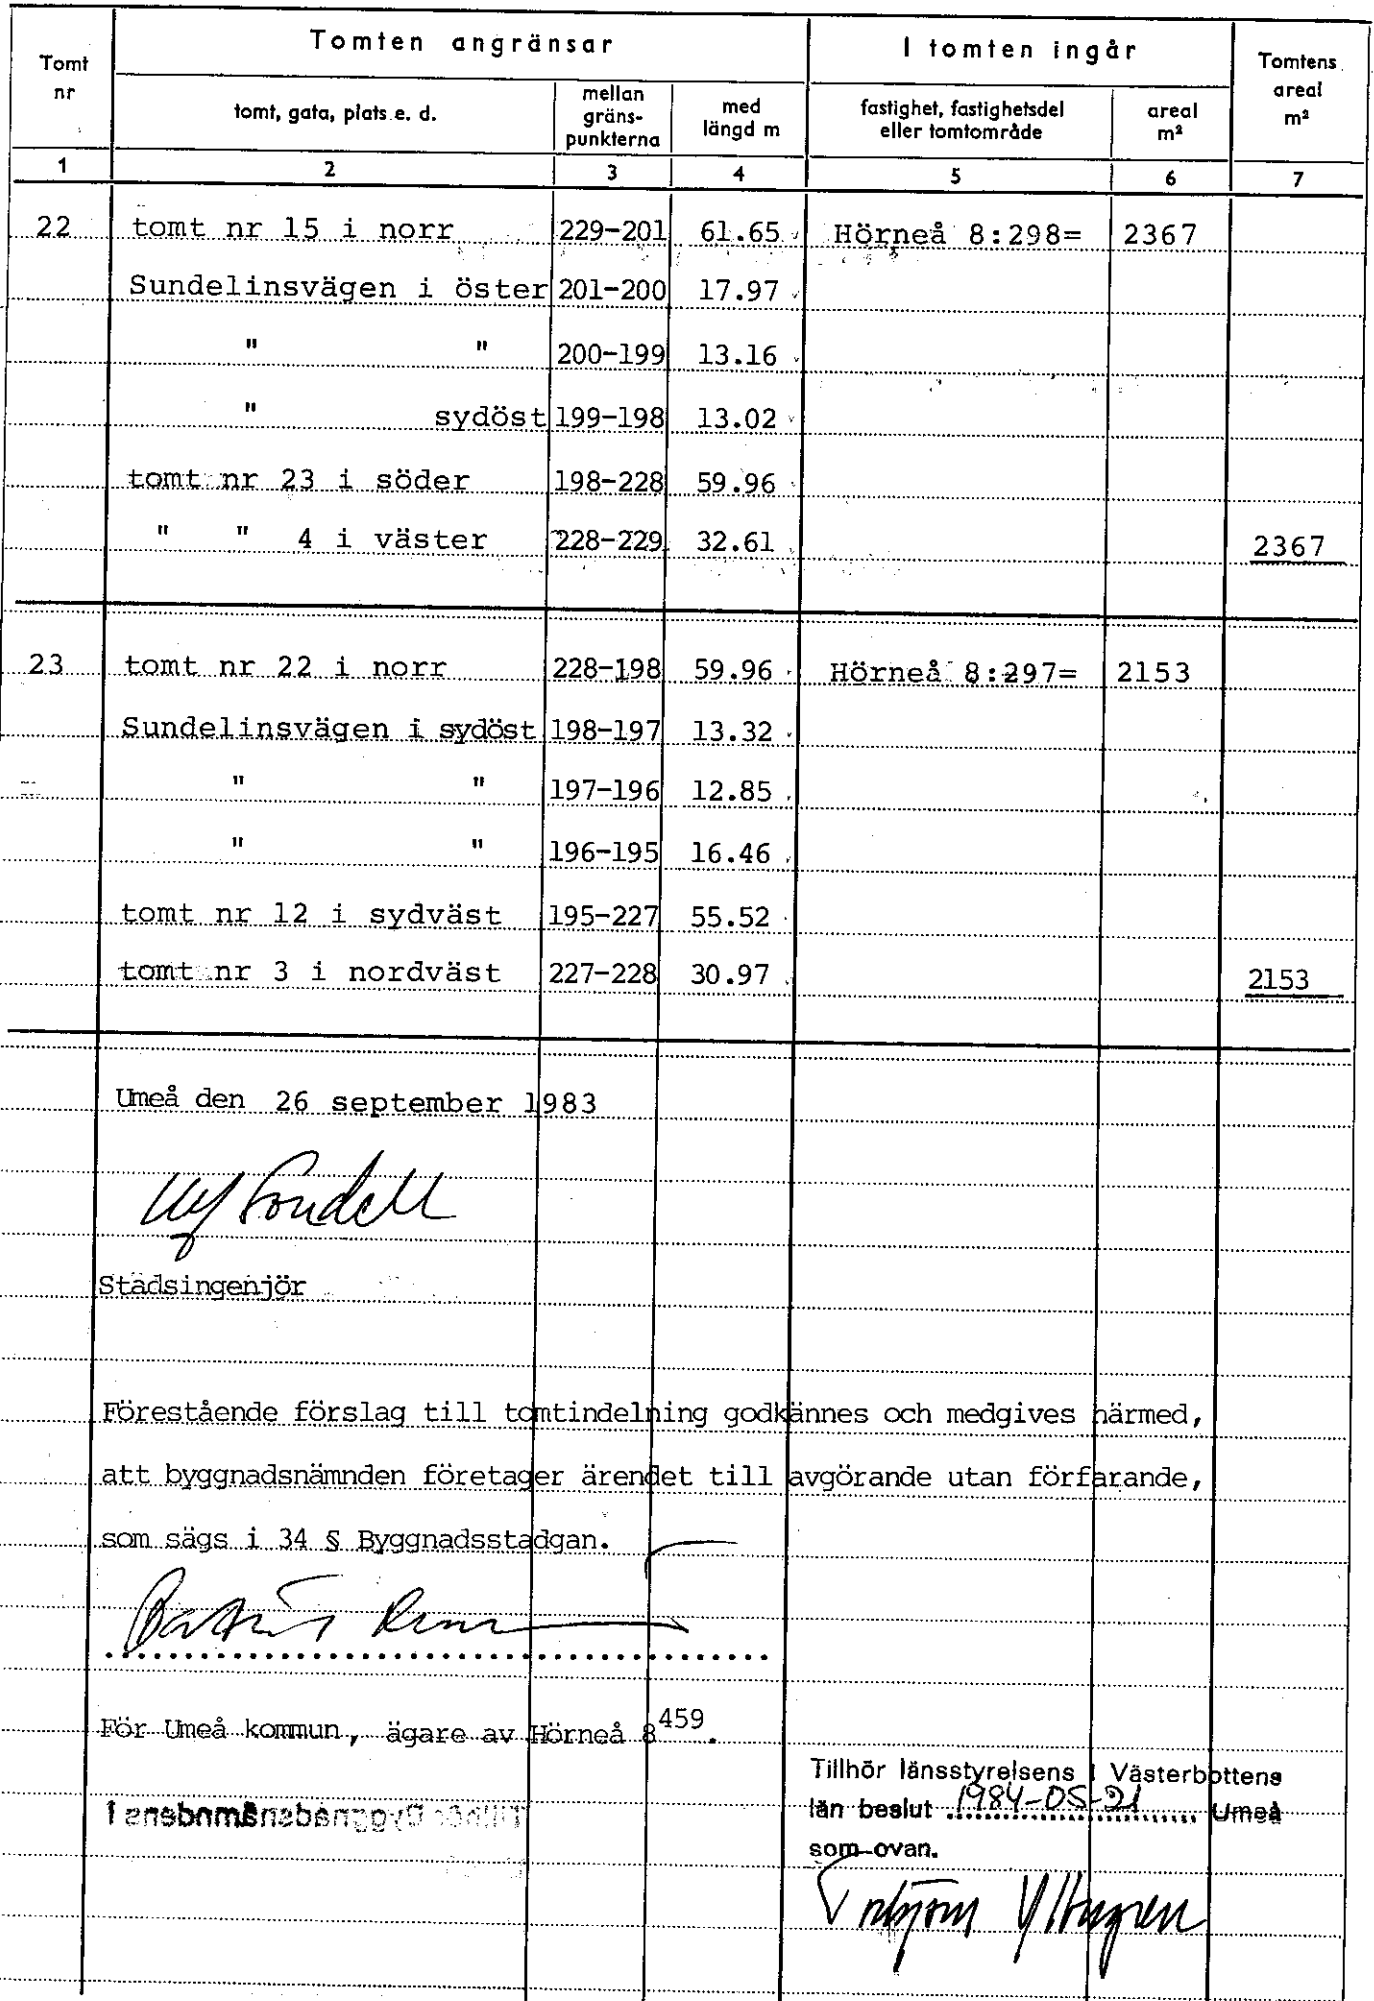 Tomt nr | Tomten angränsar | I tomten ingår | Tomtens areal m²
tomt, gata, plats e. d. | mellan gräns-punkterna | med längd m | fastighet, fastighetsdel eller tomtområde | areal m²
1 | 2 | 3 | 4 | 5 | 6 | 7
22 | tomt nr 15 i norr | 229-201 | 61.65 | Hörneå 8:298= | 2367
Sundelinsvägen i öster | 201-200 | 17.97
" " | 200-199 | 13.16
" sydöst | 199-198 | 13.02
tomt nr 23 i söder | 198-228 | 59.96
" " 4 i väster | 228-229 | 32.61 | 2367
23 | tomt nr 22 i norr | 228-198 | 59.96 | Hörneå 8:297= | 2153
Sundelinsvägen i sydöst | 198-197 | 13.32
" " | 197-196 | 12.85
" " | 196-195 | 16.46
tomt nr 12 i sydväst | 195-227 | 55.52
tomt nr 3 i nordväst | 227-228 | 30.97 | 2153
Umeå den 26 september 1983
Stadsingenjör
Förestående förslag till tomtindelning godkännes och medgives härmed,
att byggnadsnämnden företager ärendet till avgörande utan förfarande,
som sägs i 34 § Byggnadsstadgan.
För Umeå kommun, ägare av Hörneå 8⁴⁵⁹.
Tillhör Byggnadsnämndens i
Tillhör länsstyrelsens i Västerbottens
län beslut 1984-05-21 Umeå
som ovan.